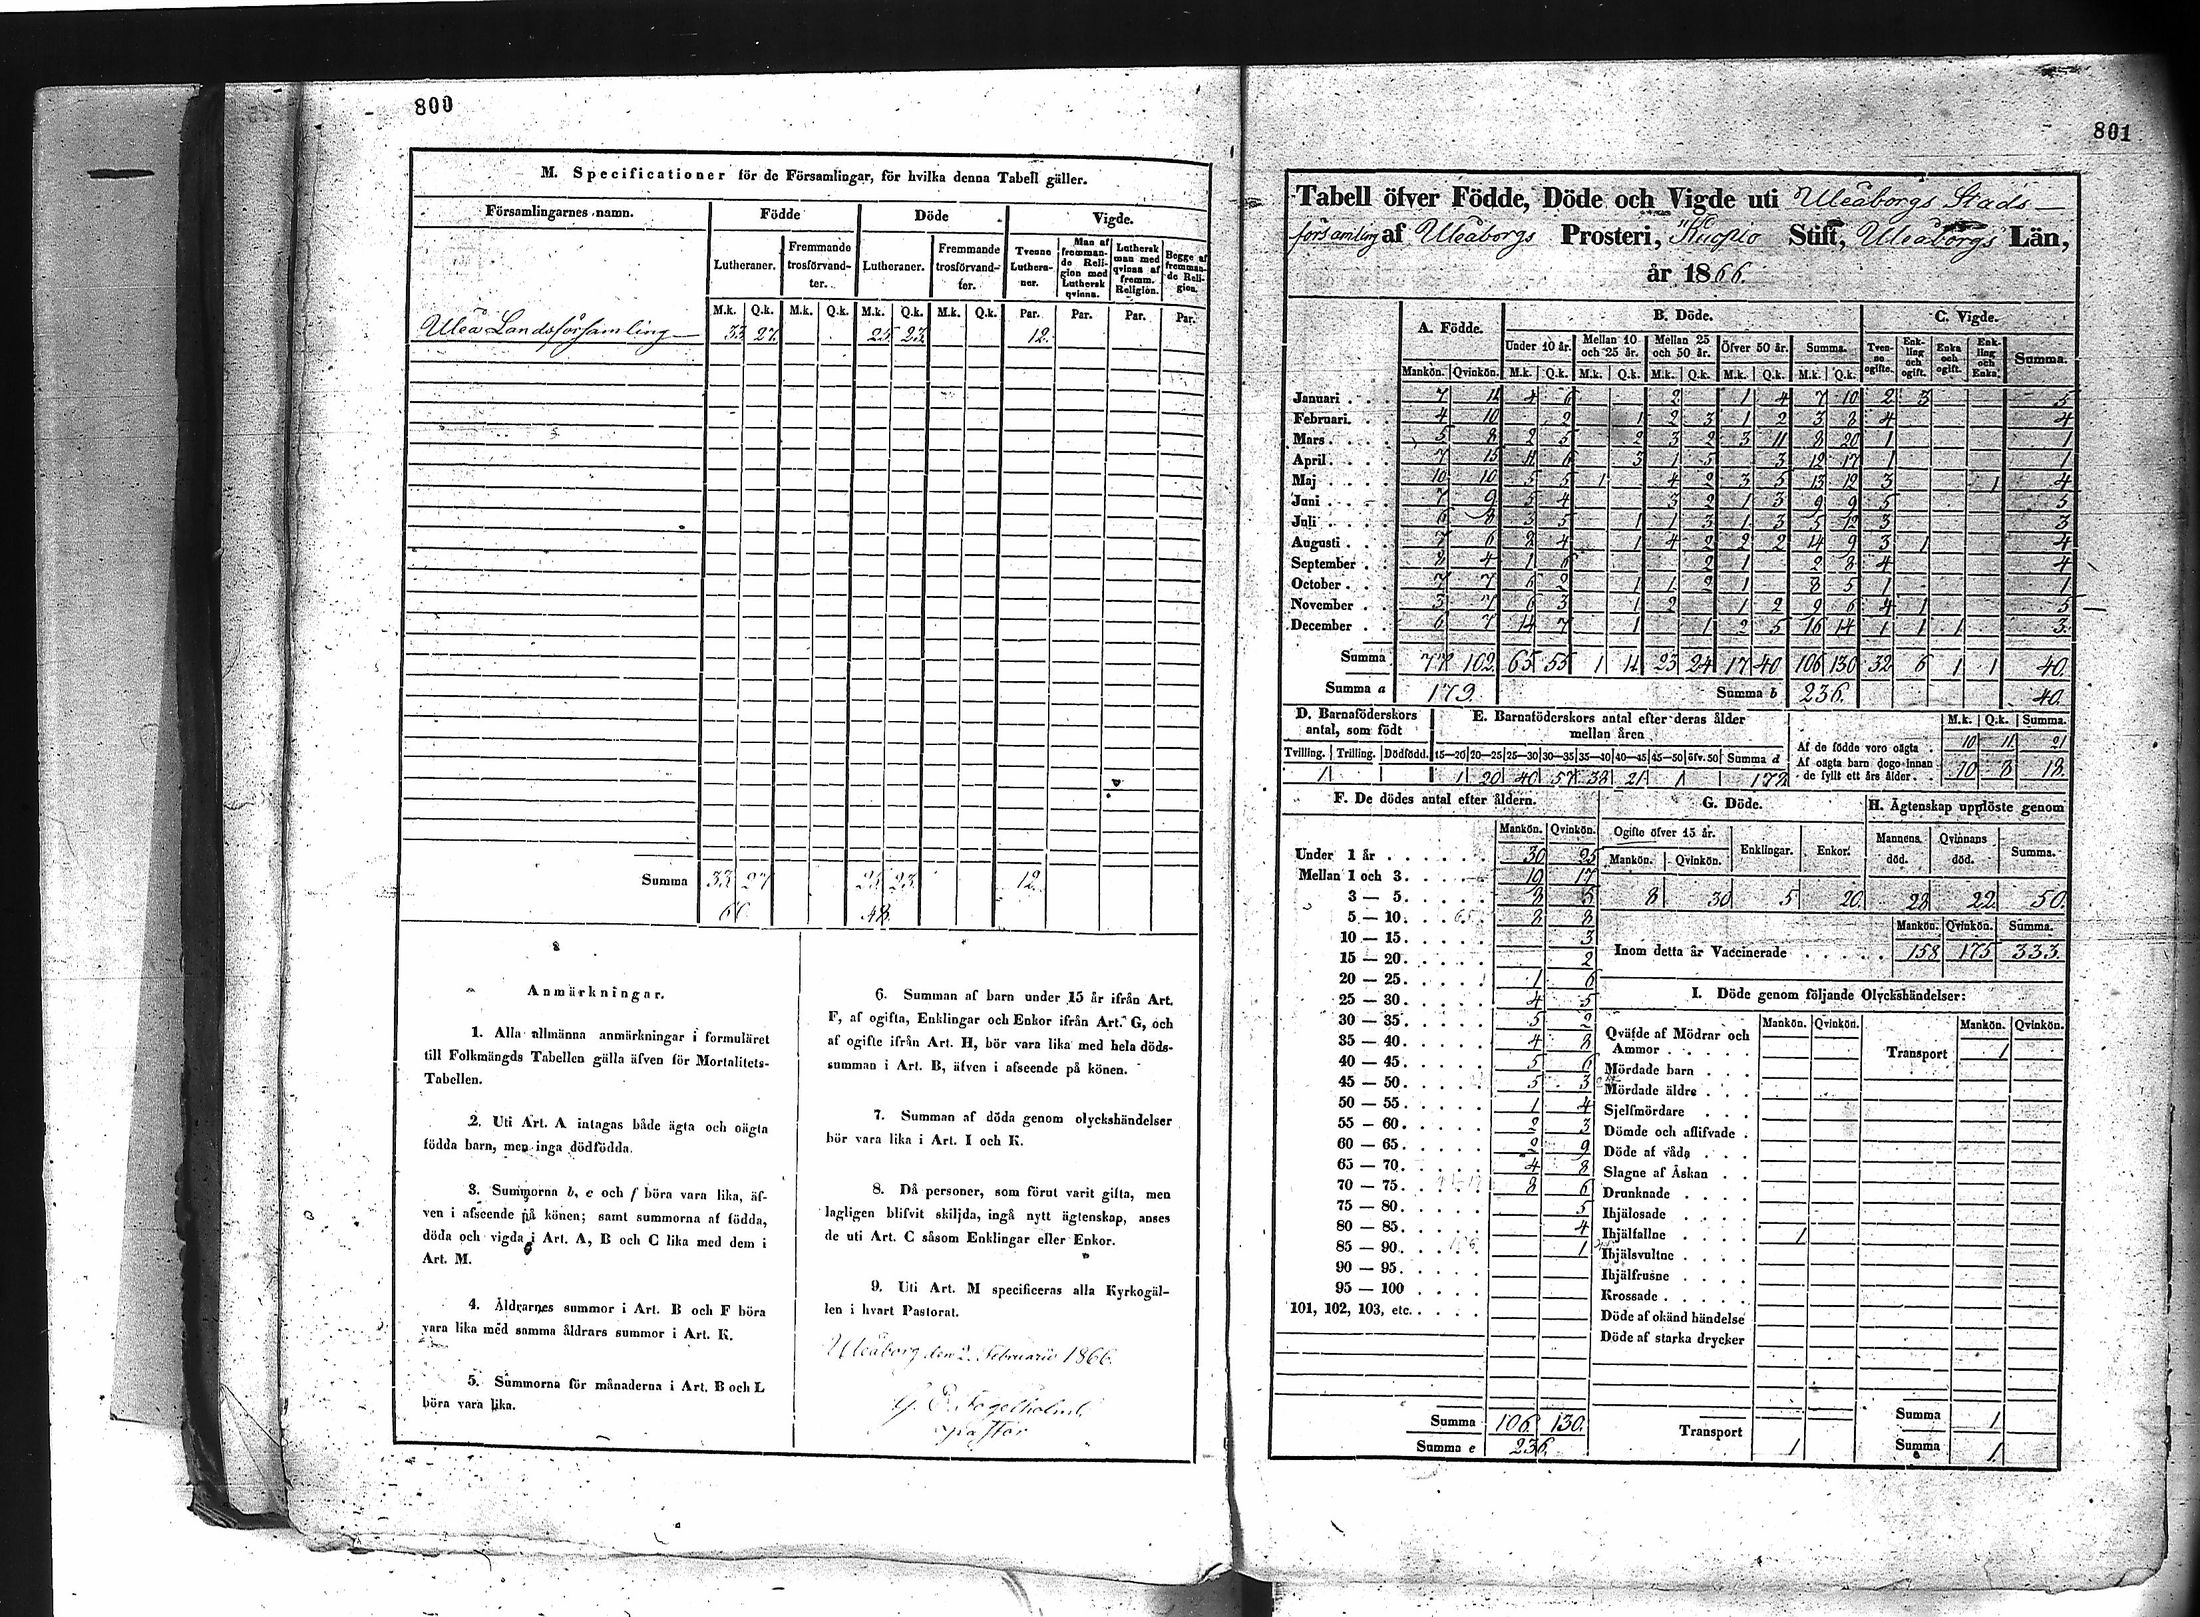 800
M. Specificationer för de Församlingar, för hvilka denna Tabell gäller.
Församlingarnes namn. Födde Döde Vigde.
Lutheraner. Fremmande trosförvandter. Lutheraner. Fremmande trosförvandter. Tvenne Lutheraner. Man af fremmande Religion med Luthersk qvinna. Luthersk man med qvinna af fremm. Religion. Begge af fremmande Religion.
M.k. Q.k. M.k. Q.k. M.k. Q.k. M.k. Q.k. Par. Par. Par. Par.
Uleå Landsförsamling 33 27. 25 23. 12.
Summa 33 27 25 23. 12.
48.
Anmärkningar.
1. Alla allmänna anmärkningar i formuläret
till Folkmängds Tabellen gälla äfven för Mortalitets-
Tabellen.
2. Uti Art. A intagas både ägta och oägta
födda barn, men inga dödfödda.
3. Summorna b, e och f böra vara lika, äf-
ven i afseende på könen; samt summorna af födda,
döda och vigda i Art. A, B och C lika med dem i
Art. M.
4. Åldrarnes summor i Art. B och F böra
vara lika med samma åldrars summor i Art. K.
5. Summorna för månaderna i Art. B och L
böra vara lika.
6. Summan af barn under 15 år ifrån Art.
F, af ogifta, Enklingar och Enkor ifrån Art. G, och
af ogifte ifrån Art. H, bör vara lika med hela döds-
summan i Art. B, äfven i afseende på könen.
7. Summan af döda genom olyckshändelser
bör vara lika i Art. I och K.
8. Då personer, som förut varit gifta, men
lagligen blifvit skiljda, ingå nytt ägtenskap, anses
de uti Art. C såsom Enklingar eller Enkor.
9. Uti Art. M specificeras alla Kyrkogäl-
len i hvart Pastorat.
Uleåborg den 2. Februarii 1866.
pastor
801
Tabell öfver Födde, Döde och Vigde uti Uleåborgs Stads-
församling af Uleåborgs Prosteri, Kuopio Stift, Uleåborgs Län,
år 1866.
A. Födde. B. Döde. C. Vigde.
Under 10 år. Mellan 10 och 25 år. Mellan 25 och 50 år. Öfver 50 år. Summa. Tvenne ogifte. Enkling och ogift. Enka och ogift. Enkling och Enka. Summa.
Mankön. Qvinkön. M.k. Q.k. M.k. Q.k. M.k. Q.k. M.k. Q.k. M.k. Q.k.
Januari 7 11 4 6 2 1 4 7 10 2 3 5
Februari. 4 10 2 1 2 3 1 2 3 8 4 4
Mars 5 8 2 5 2 3 2 3 11 8 20 1 1
April 7 15 11 6 3 1 5 3 12 17 1 1
Maj 10 10 5 5 1 4 2 3 5 13 12 3 1 4
Juni 7 9 5 4 3 2 1 3 9 9 5 5
Juli 6 8 3 5 1 1 3 1 3 5 12 3 3
Augusti 7 6 2 4 1 4 2 2 2 14 9 3 1 4
September 8 4 1 6 2 1 2 8 4 4
October 7 7 6 2 1 1 2 1 8 5 1 1
November 3 7 6 3 1 2 1 2 9 6 4 1 5
December 6 7 14 7 1 1 2 5 16 14 1 1 1 3.
Summa 77 102 65 55 1 11 23 24 17 40 106 130 32 6 1 1 40.
Summa a 179. Summa b 236. 40.
D. Barnaföderskors antal, som födt E. Barnaföderskors antal efter deras ålder mellan åren
Tvilling. Trilling. Dödfödd. 15—20 20—25 25—30 30—35 35—40 40—45 45—50 öfv. 50 Summa d
1 1 20 40 57 38 21 1 178
M.k. Q.k. Summa.
Af de födde voro oägta 10 11 21
Af oägta barn dogo innan de fyllt ett års ålder. 10 8 18.
F. De dödes antal efter åldern.
Mankön. Qvinkön.
Under 1 år 30 25
Mellan 1 och 3 19 17
3 — 5 8 5
5 — 10 8 8
10 — 15 3
15 — 20 2
20 — 25 1 6
25 — 30 4 5
30 — 35 5 2
35 — 40 4 8
40 — 45 5 6
45 — 50 5 3
50 — 55 1 4
55 — 60 2 3
60 — 65 2 9
65 — 70 4 8
70 — 75 8 6
75 — 80 5
80 — 85 4
85 — 90 1
90 — 95
95 — 100
101, 102, 103, etc.
Summa 106. 130.
Summa e 236.
G. Döde.
Ogifte öfver 15 år. Enklingar. Enkor.
Mankön. Qvinkön.
8 30 5 20.
H. Ägtenskap upplöste genom
Mannens död. Qvinnans död. Summa.
28 22 50.
Mankön. Qvinkön. Summa.
Inom detta år Vaccinerade 158 175 333.
I. Döde genom följande Olyckshändelser:
Mankön. Qvinkön. Mankön. Qvinkön.
Qväfde af Mödrar och Ammor
Transport 1
Mördade barn
Mördade äldre
Sjelfmördare
Dömde och aflifvade
Döde af våda
Slagne af Åskan
Drunknade
Ihjälosade
Ihjälfallne 1
Ihjälsvultne
Ihjälfrusne
Krossade
Döde af okänd händelse
Döde af starka drycker
Summa 1
Transport 1 Summa 1.